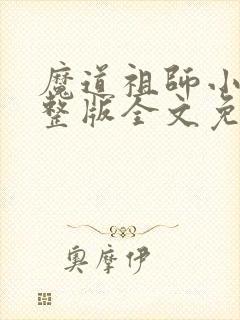 魔道祖师小
整版全文免
奥摩伊